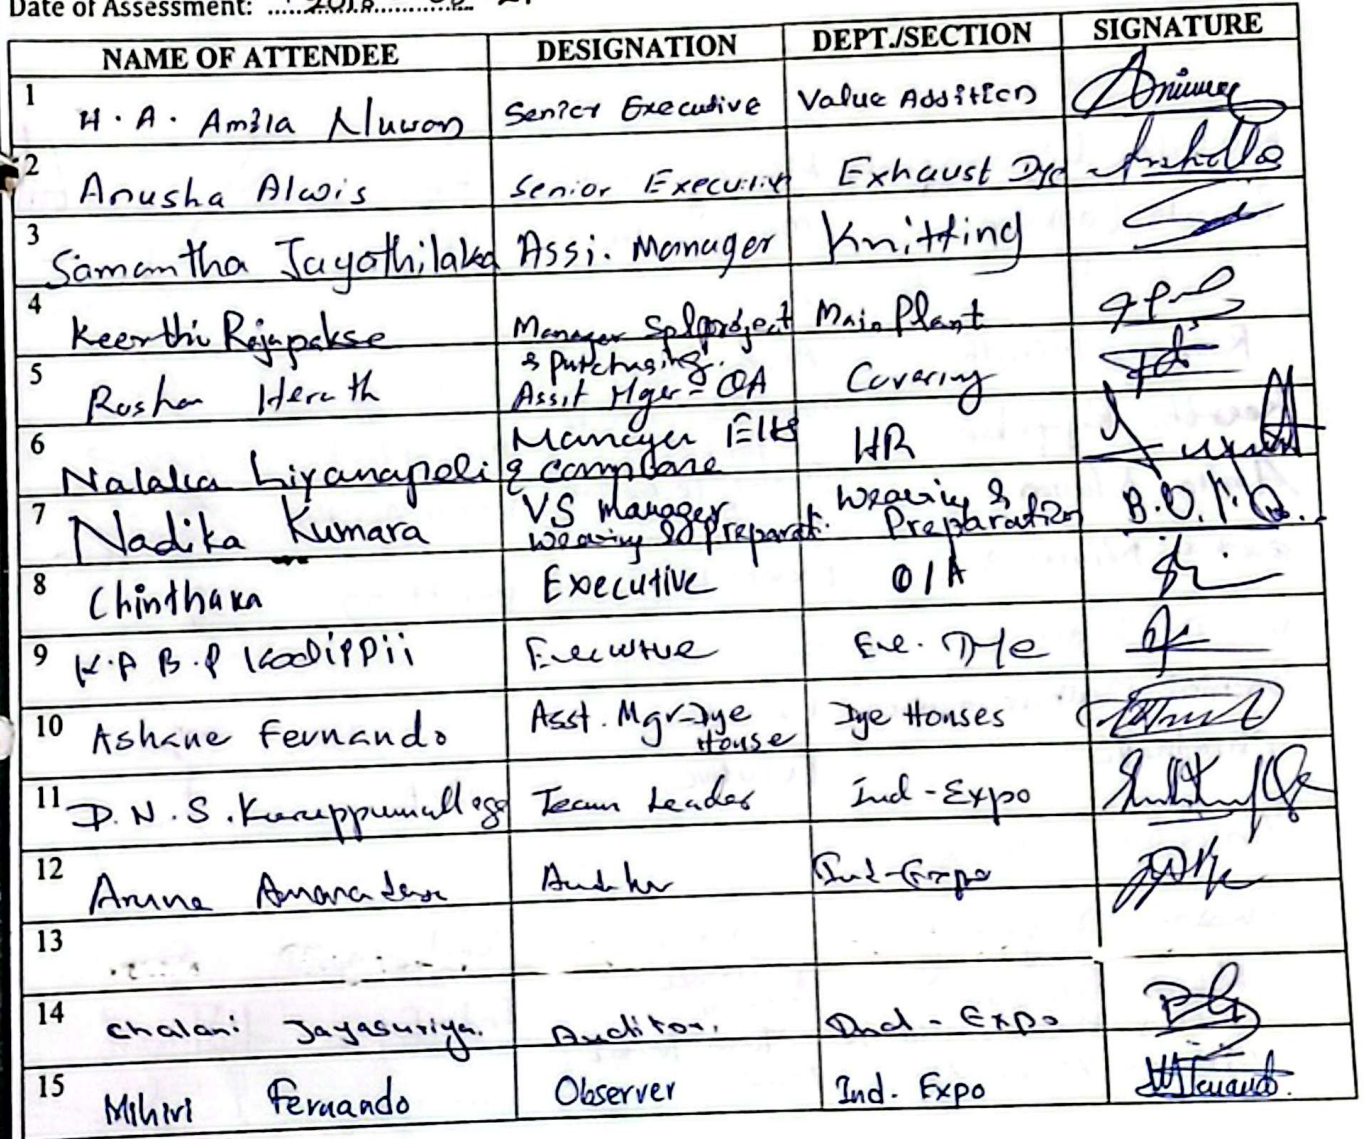 Date of Assessment: 2018
NAME OF ATTENDEE DESIGNATION DEPT./SECTION SIGNATURE
1 H. A. Amila Nuwan Senior Executive Value Addition
2 Anusha Alwis Senior Executive Exhaust Dye
3 Samantha Jayathilaka Assi. Manager Knitting
4 Keerthi Rajapakse Manager Spl project Main Plant
& purchasing.
5 Roshan Herath Assit Mger - QA Covering
6 Nalaka Liyanapeli Manager HR
&
7 Nadika Kumara VS Manager Weaving &
Weaving & Preparati. Preparation B.O.P.Q.
8 Chinthaka Executive Q/A
9 K.P B.P Kodippii Executive Exe. Dye
10 Ashane Fernando Asst. Mgr-Dye Dye Houses
House
11 D.N.S. Team Leader Ind-Expo
12 Aruna Auditor Ind-Expo
13
14 Chalani Jayasuriya. Auditor. Ind - Expo
15 Mihiri Fernando Observer Ind. Expo